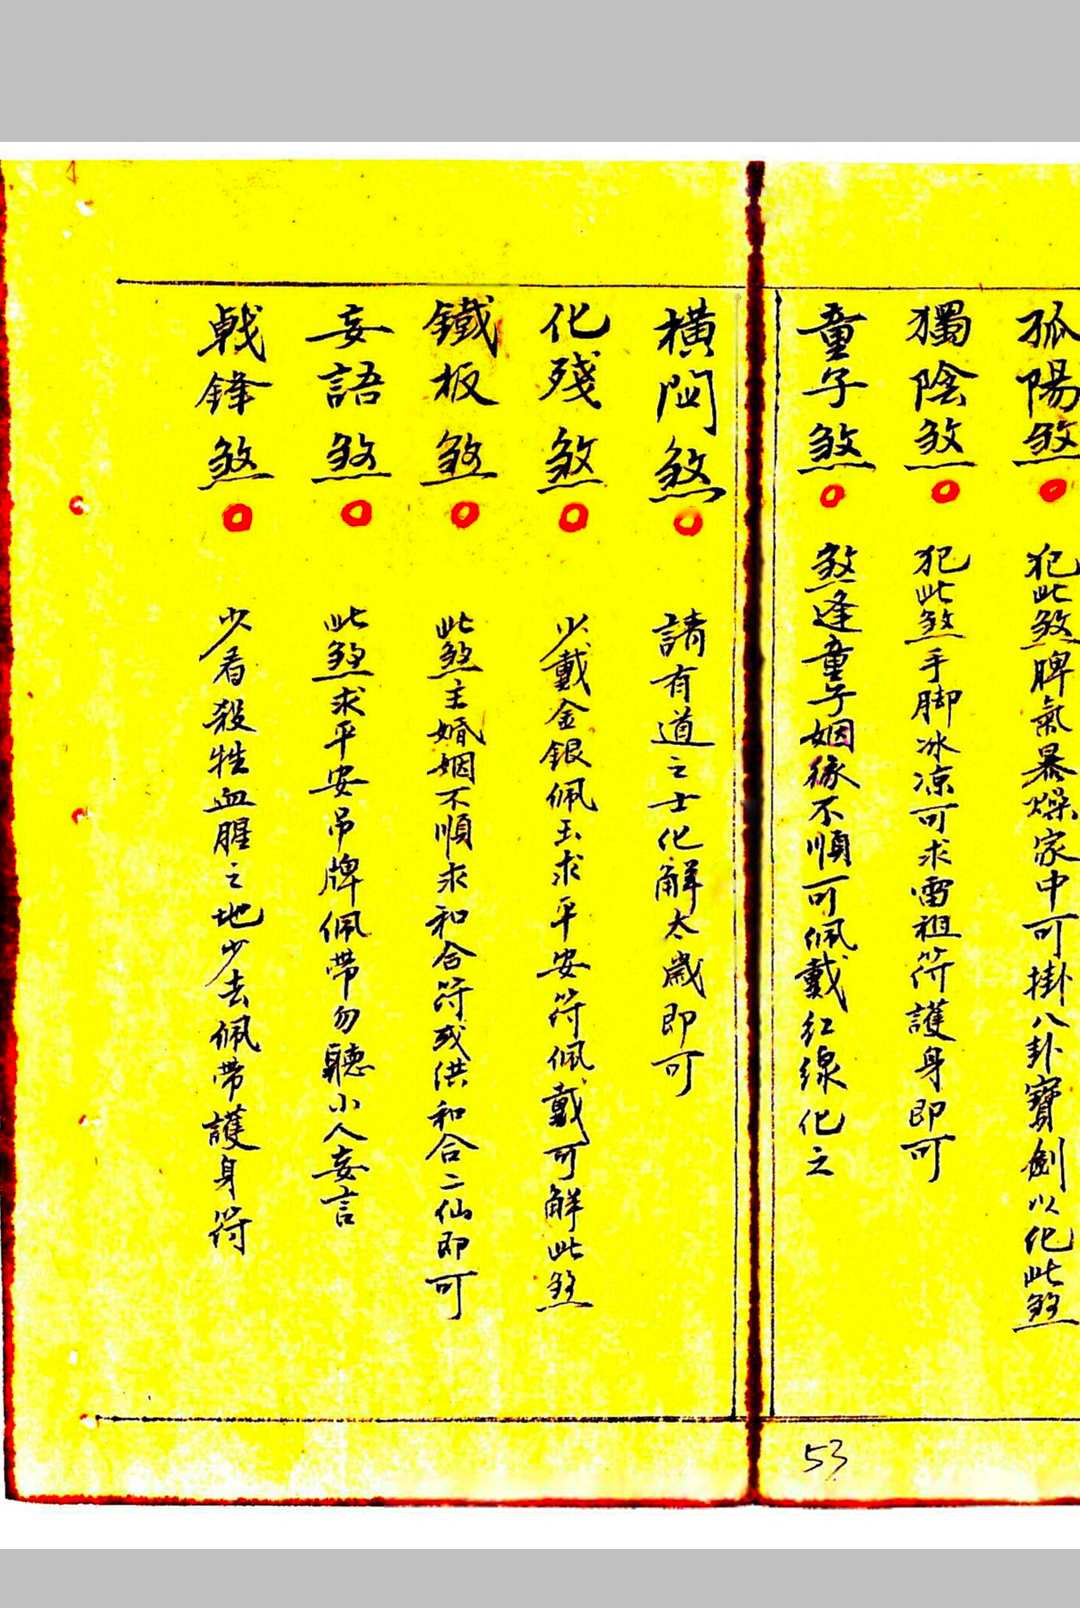 孤陽煞 犯此煞脾氣暴燥家中可掛八卦寶劍以化此煞
獨陰煞 犯此煞手脚冰凉可求雷祖符護身即可
童子煞 煞逢童子姻缘不順可佩戴红線化之
53
橫関煞 請有道之士化解太歲即可
化殘煞 少戴金銀佩玉求平安符佩戴可解此煞
鐵板煞 此煞主婚姻不順求和合符或供和合二仙即可
妄語煞 此煞求平安吊牌佩带勿聽小人妄言
戟鋒煞 少看殺牲血腥之地少去佩带護身符